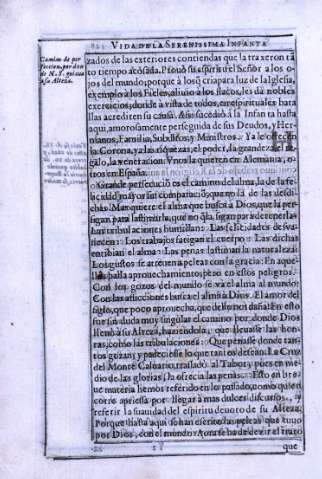 VIDA DE LA SERENISSIMA INFANTA
Camino de per
feccion, por don
de N. S. guiaua
a su Alteza.
zados de las exteriores contiendas que la traxeron tã
to tiempo acosada. Prouò su espiritu el Señor a los o
jos del mundo, porque à los q̃ criapara luz de la Iglesia,
exemplo à los Fieles, aliuio à los flacos, les dà nobles
exercicios, donde à vista de todos, en espirituales bata
llas acrediten su causa. Assi sucediò à la Infanta hasta
aqui, amorosamente perseguida de sus Deudos, y Her-
manos, Familia, Subditos, y Ministros. Ya le
la Corona, ya las riquezas, el poder, la grandeza, el re
galo, la veneracion. Vnos la quieren en Alemania, o-
tros en España.
Grande persecuciõ es el camino del alma, la de la fe-
licidad
chas. Mas quiere el alma que busca à Dios, que la per-
sigan para lastimarla, que no q̃ la sigan para detenerla
las tribulaciones humillan: Las felicidades desua-
necen: Los trabajos fatigan el cuerpo: Las dichas
entibian el alma: Las penas lastiman la naturaleza:
Los gustos se atreuen à pelear con la gracia: En aque-
llas halla aprouechamientos, pero en estos peligros.
Con los gozos del mundo se và el alma al mundo:
Con las aflicciones busca el alma à Dios. El amor del
siglo, que poco aprouecha, que de el mucho daña! En esto
fue sin duda muy singular el camino por donde Dios
lleuò à su Alteza, haziendola, que lleuasse las hon-
ras, como las tribulaciones: Que penasse donde tan-
tos gozan, y padeciesse lo que tantos desean. La Cruz
del Monte Caluario, traslado al Tabor, pues en me-
dio de las glorias, la ofrecia las penas. Esto en bre-
ue materia hemos referido en lo passado, como quien
corre apriessa por llegar à mas dulces discursos, y
referir la suauidad del espiritu deuoto de su Alteza.
Porque hasta aqui se han escrito las peleas que tuuo
por Dios, con el mundo: Aora se ha de dezir el trato
que